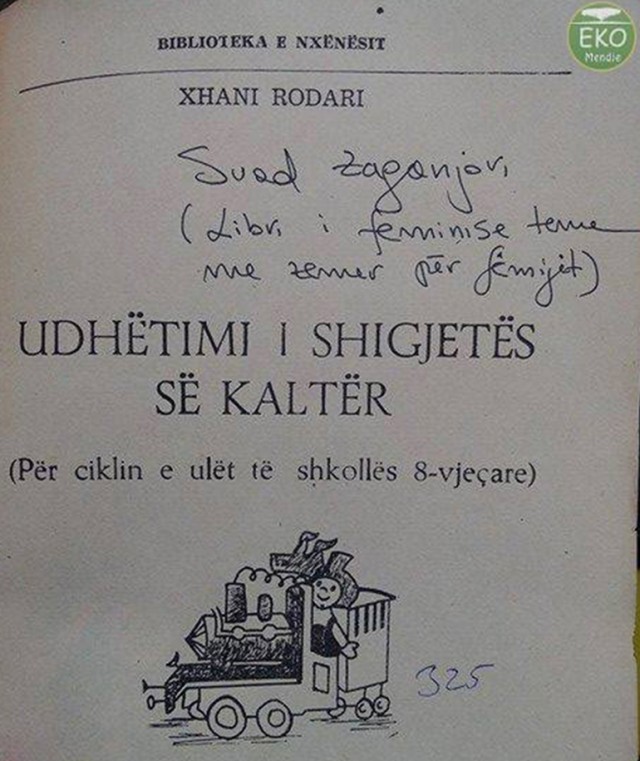 EKO
Mendje
BIBLIOTEKA E NXËNËSIT
XHANI RODARI
Suad Zaganjori
(Libri i feminise teme
me zemer për fëmijët)
UDHËTIMI I SHIGJETËS
SË KALTËR
(Për ciklin e ulët të shkollës 8-vjeçare)
325